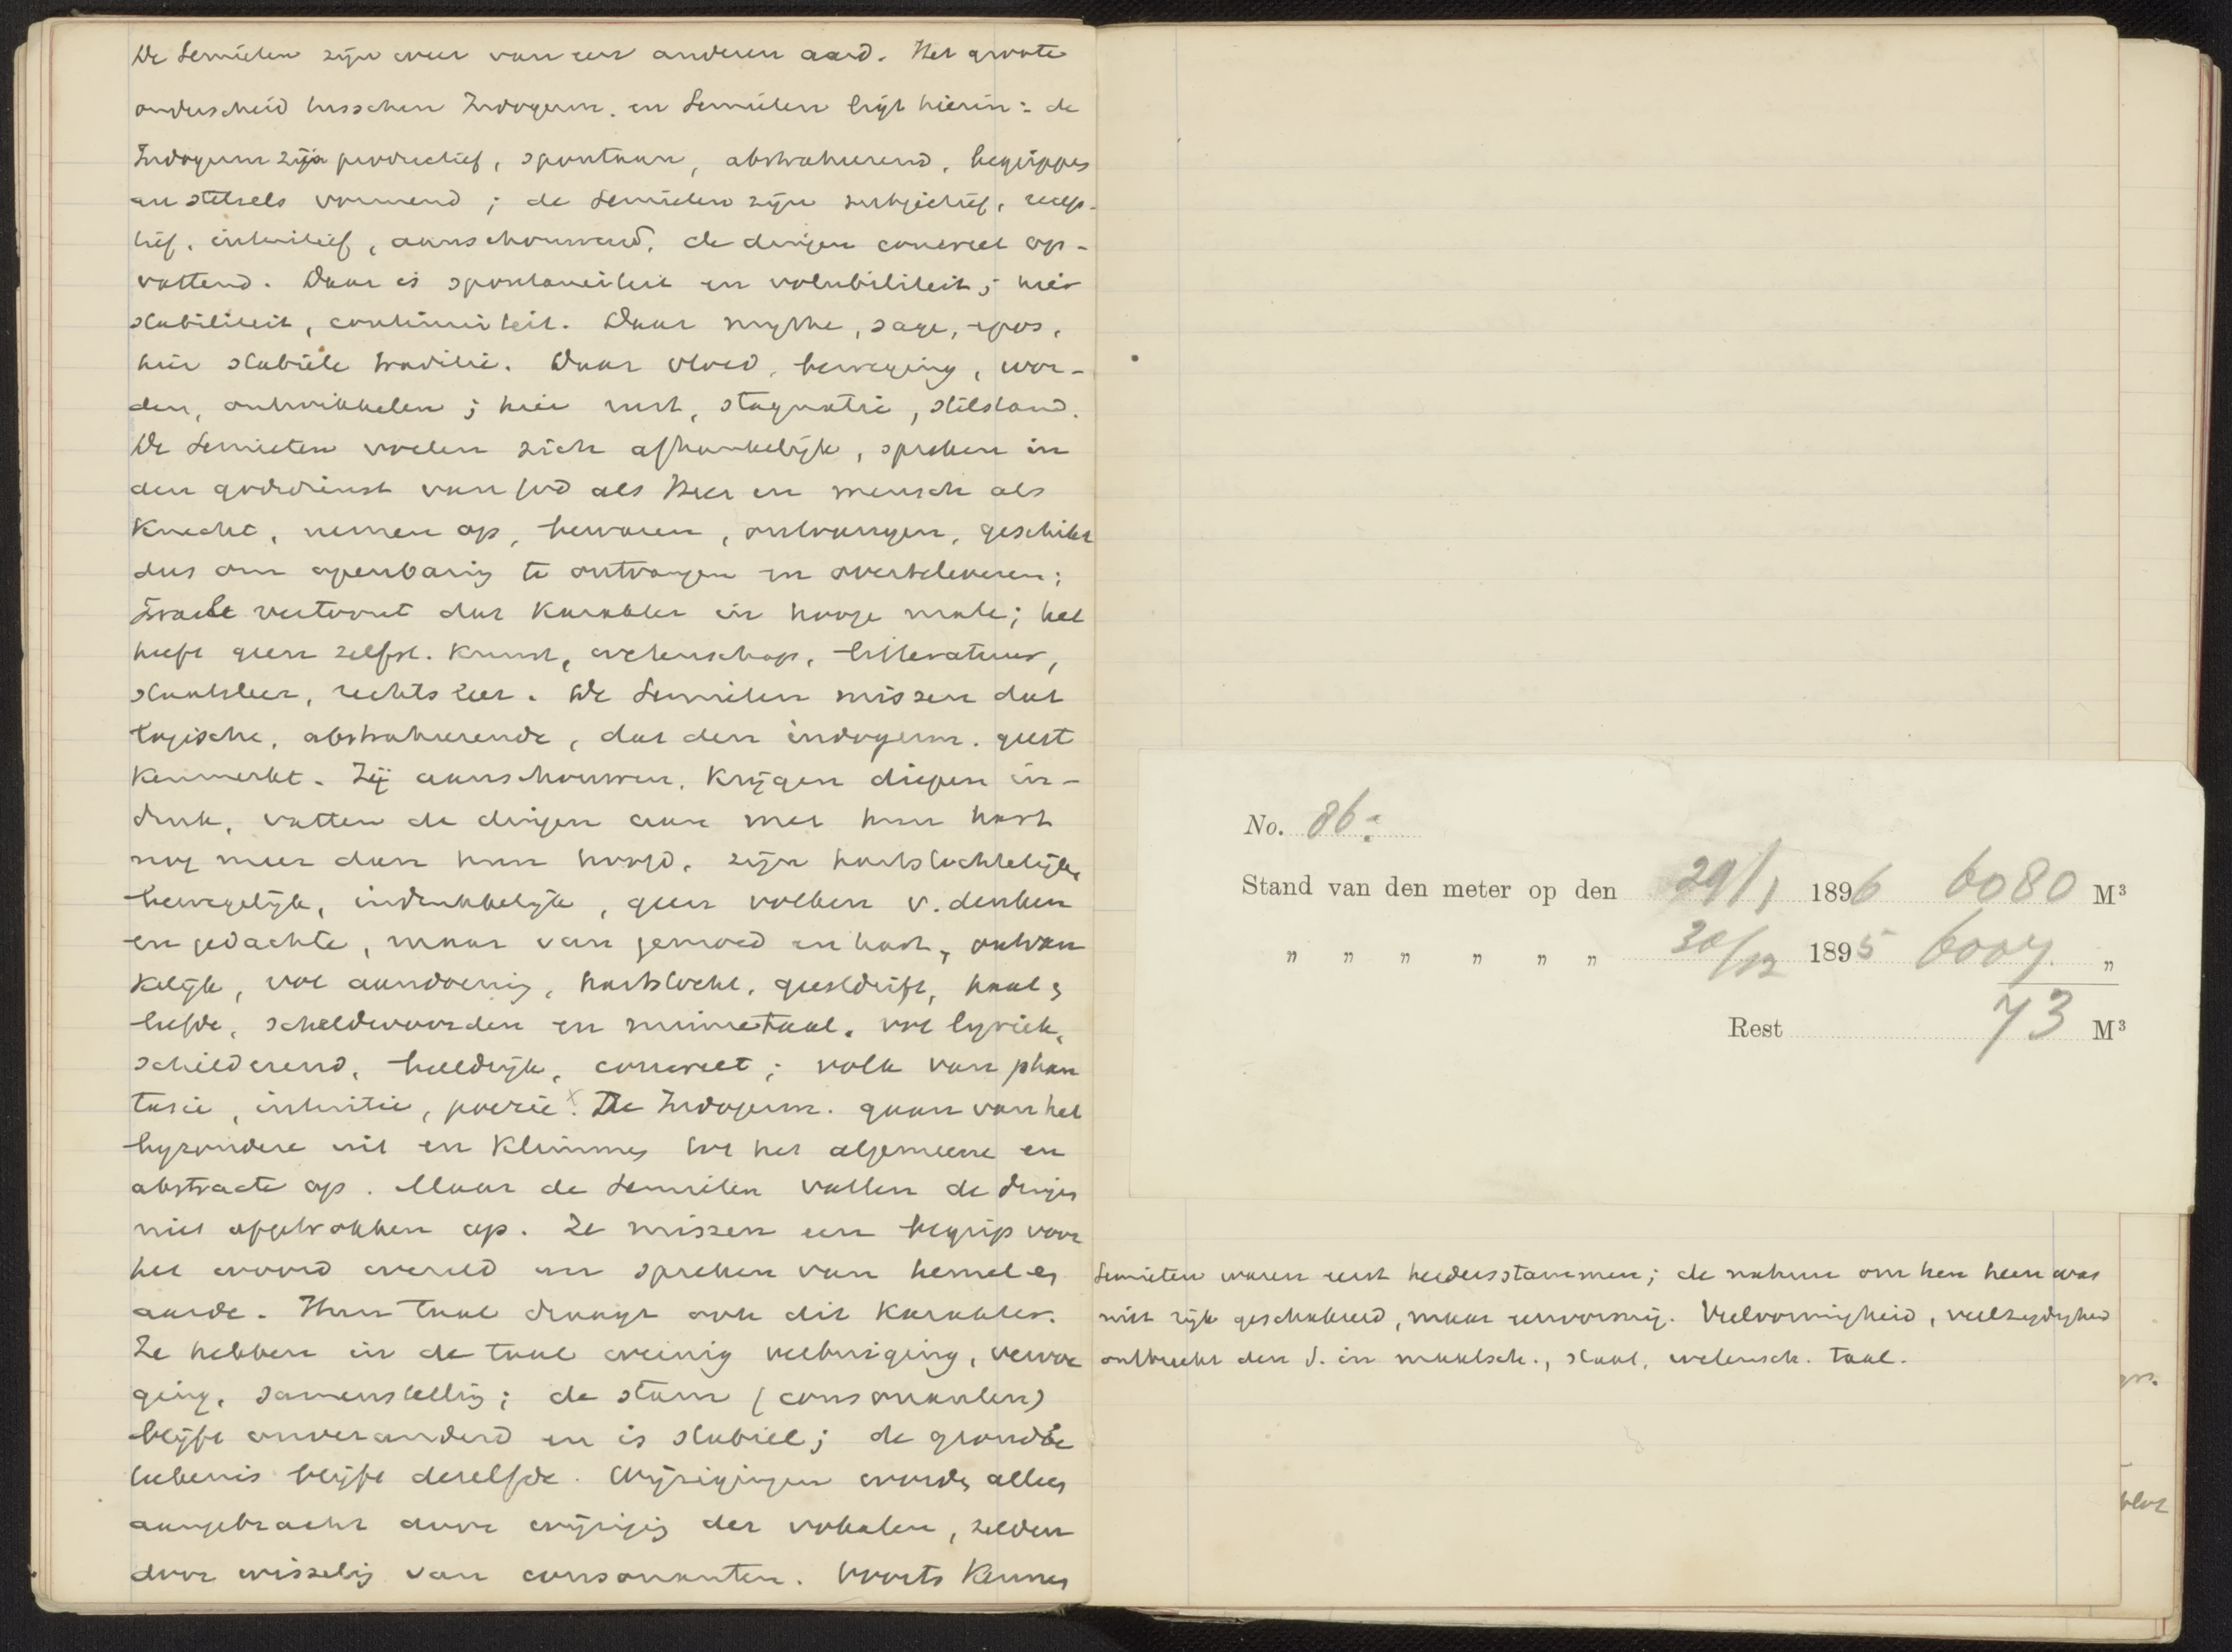 De Semieten zijn weer van een anderen aard. Het groote
onderscheid tusschen Indogerm. en Semieten ligt hierin: de
Indogerm zijn productief, spontaan, abstraheerend, begrippen
en stelsels vormend; de Semieten zijn subjectief, recep-
tief, intuitief, aanschouwend, de dingen concreet op-
vattend. Daar is spontaneiteit en volubiliteit; hier
stabiliteit, continuiteit. Daar mythe, sage, epos,
hier stabiele traditie. Daar vloed, beweging, wor-
den, ontwikkelen; hier rust, stagnatie, stilstand.
De Semieten voelen zich afhankelijk, spreken in
den godsdienst van God als Heer en mensch als
Knecht, nemen op, bewaren, ontvangen, geschikt
dus om openbaring te ontvangen en overteleveren;
Israel vertoont dat karakter in hooge mate; het
heeft geen zelfst. kunst, wetenschap, litteratuur,
staatsleer, rechtsleer. De Semieten missen dat
logische, abstraheerende, dat den indogerm. geest
kenmerkt. Zij aanschouwen, krijgen diepen in-
druk, vatten de dingen aan met hun hart
nog meer dan hun hoofd, zijn hartstochtelijk,
bewegelijk, indrukkelijk, geen volken v. denken
en gedachte, maar van gemoed en hart, ontvan
kelijk, vol aandoening, hartstocht, geestdrift, haat &
liefde, scheldwoorden en minnetaal, vol lyriek,
schilderend, beeldrijk, concreet; volk van phan
tasie, intuitie, poezie x. De Indogerm. gaan van het
byzondere uit en klimmen tot het algemeene en
abstracte op. Maar de Semieten vatten de dingen
niet afgetrokken op. Ze missen een begrip voor
het woord wereld en spreken van hemel en
aarde. Hun taal draagt ook dit karakter.
Ze hebben in de taal weinig verbuiging, vervoe
ging, samenstelling; de stam (consonanten)
blijft onveranderd en is stabiel; de grondbe
teekenis blijft dezelfde. Wijzigingen worden alleen
aangebracht door wijziging der vokalen, zelden
door wisseling van consonanten. Voorts kennen
No. 86.
Stand van den meter op den 29/1 1896 6080 M³
" " " " " " 30/12 1895 6007 "
Rest 73 M³
Semieten waren eerst herdersstammen; de natuur om hen heen was
niet rijk geschakeerd, maar eenvormig. Veelvormigheid, veelzijdigheid
ontbreekt den S. in maatsch., staat, wetensch. taal.